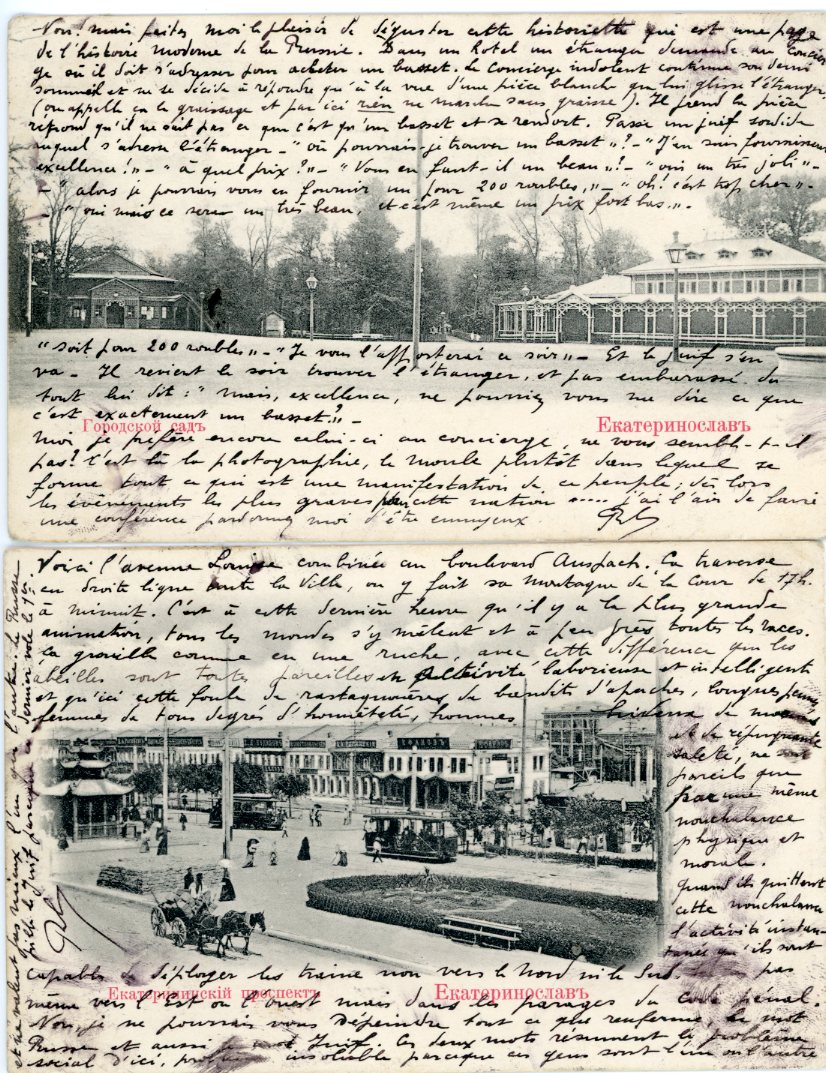 Non! mais faites moi le plaisir de déguster cette historiette qui est une page
de l'histoire moderne de la Russie. Dans un Hotel un étranger demande au Concier-
ge où il doit s'adresser pour acheter un basset. Le Concierge indolent continue son demi
sommeil et ne se décide à répondre qu'à la vue d'une pièce blanche que lui glisse l'étranger,
(on appelle ça le graissage et par ici rien ne marche sans graisse). Il prend la pièce
répond qu'il ne sait pas ce que c'est qu'un basset et se rendort. Passe un juif sordide
auquel s'adresse l'étranger - "où pourrais-je trouver un basset"? - "J'en suis fournisseur
excellence!" - "à quel prix?" - "Vous en faut-il un beau"? - "oui un très joli" -
- "alors je pourrais vous en fournir un pour 200 roubles," - "oh! c'est trop cher" -
- "oui mais ce sera un très beau, et c'est même un prix fort bas."
"soit pour 200 roubles" - "Je vous l'apporterai ce soir" - Et le juif s'en
va - Il revient le soir trouver l'étranger, et pas embarassé du
tout lui dit: "mais, excellence, ne pourriez vous me dire ce que
c'est exactement un basset?" -
Городской садъ Екатеринославъ
Moi je préfère encore celui-ci au concierge, ne vous semble-t-il
pas? C'est là la photographie, le moule plutôt dans lequel se
forme tout ce qui est une manifestation de ce peuple; dès lors
les évènements les plus graves cette nation ..... j'ai l'air de faire
une conférence pardonnez moi d'être ennuyeux.
Voici l'avenue Louise combinée au boulevard Anspach. Ca traverse
en droite ligne toute la Ville, on y fait sa montagne de la Cour de 17h.
à minuit. C'est à cette dernière heure qu'il y a la plus grande
animation, tous les mondes s'y mêlent et à peu près toutes les races.
Ca grouille comme en une ruche, avec cette différence que les
abeilles sont toutes pareilles en activité laborieuse et intelligente
et qu'ici cette foule de rastaquouères, de bandits d'apaches, longues
femmes de tous degrés d'honnêteté, hommes hideux de
et de répugnante
saleté, ne sont
pareils que
par une même
nonchalance
physique et
morale.
Quand ils quittent
cette nonchalance
l'activité instan-
tanée qu'ils sont
capables de déployer les traine non vers le Nord ni le Sud pas
Екатерининскій проспектъ Екатеринославъ
même vers l'Est ou l'Ouest mais dans les parages du Code pénal.
Non, je ne pourrais vous dépeindre tout ce que renferme le mot
Russe et aussi le mot Juif. Ces deux mots résument le problème
social d'ici, insoluble parceque ces gens sont l'un ou l'autre
et ne valent pas mieux l'un que l'autre. Le Russe
pille le Juif parceque ce dernier vole le 1er.